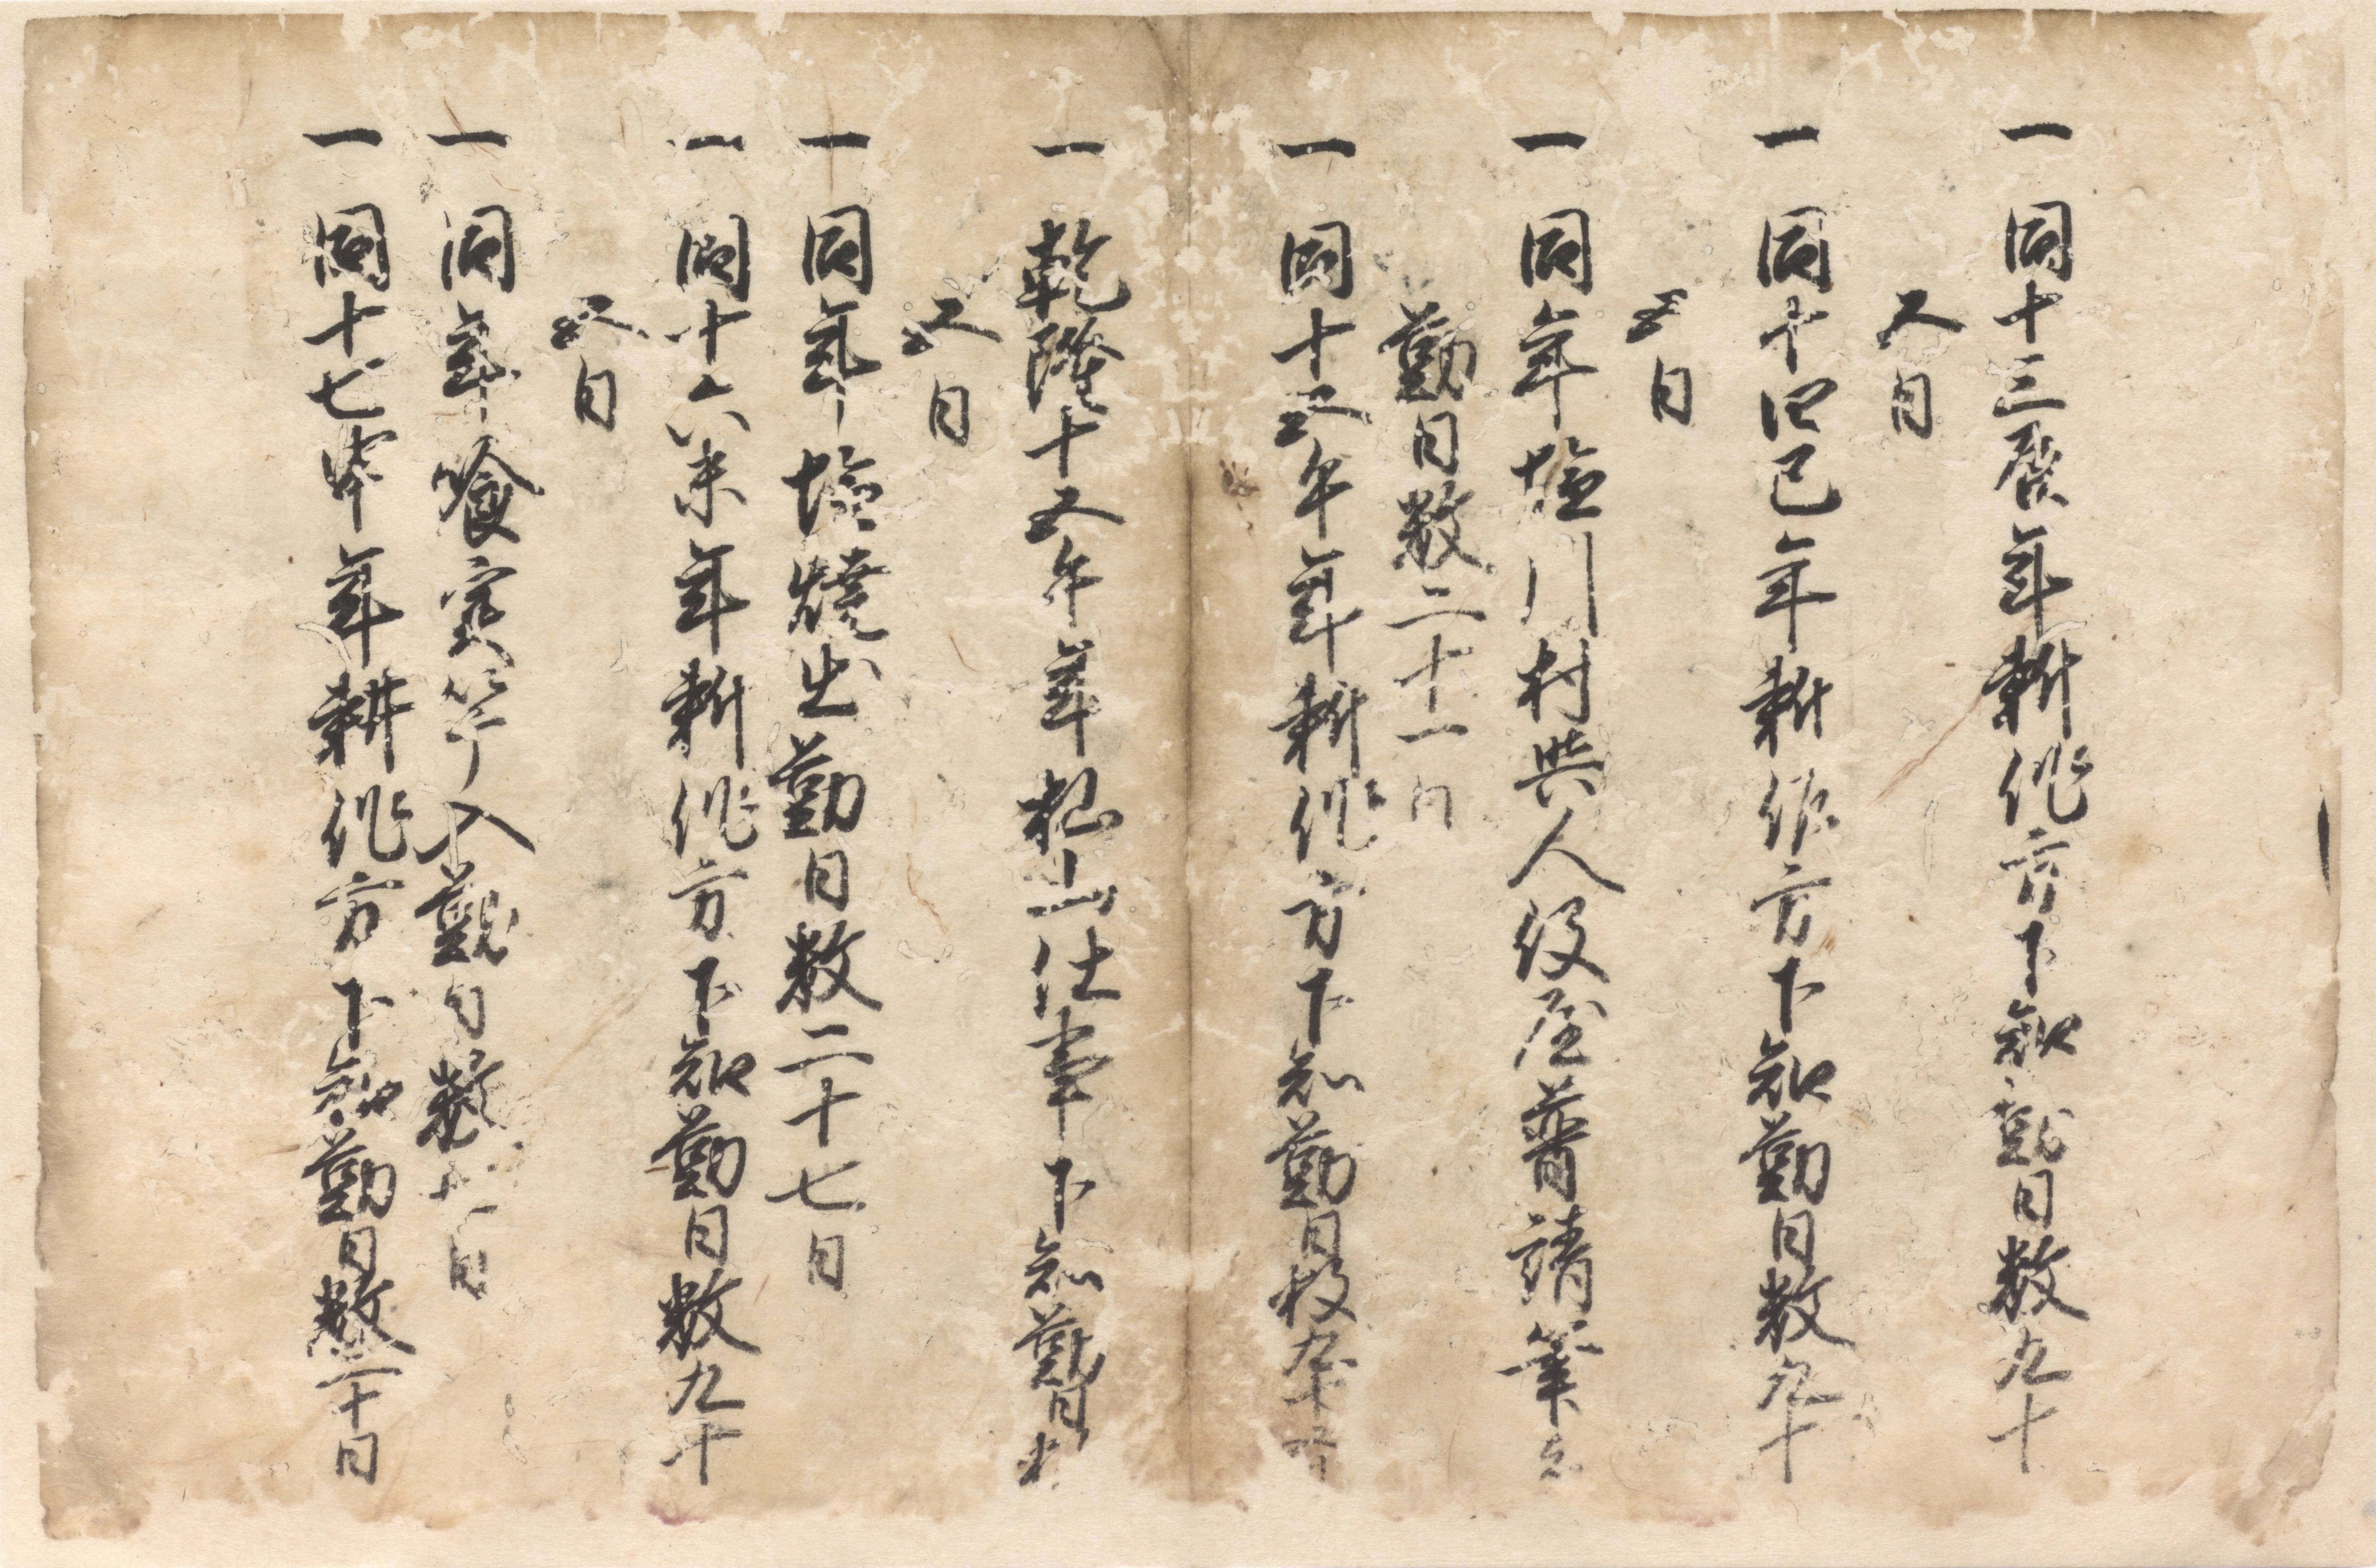 一同十三辰年耕作方下知勤日数九十
五日
一同十四巳年耕作方下知勤日数九十
五日
一同年塩川村与人役屋普請筆者
勤日数二十一日
一同十五午年耕作方下知勤日数九十五日
一乾隆十五午年杣山仕事下知勤日数
五日
一同年塩焼出勤日数二十七日
一同十六未年耕作方下知勤日数九十
五日
一同年喰実竿入勤日数十一日
一同十七申年耕作方下知勤日数二十日